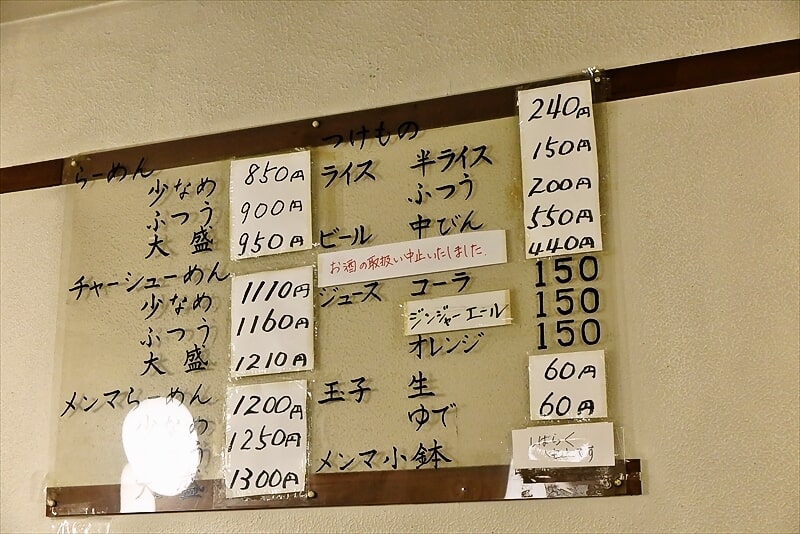 らーめん
少なめ 850円
ふつう 900円
大盛 950円
チャーシューめん
少なめ 1110円
ふつう 1160円
大盛 1210円
メンマらーめん
少なめ 1200円
う 1250円
大盛 1300円
つけもの 240円
ライス 半ライス 150円
ふつう 200円
ビール 中びん 550円
440円
お酒の取扱い中止いたしました。
ジュース コーラ 150
ジンジャーエール 150
オレンジ 150
玉子 生 60円
ゆで 60円
メンマ小鉢 しばらく
です